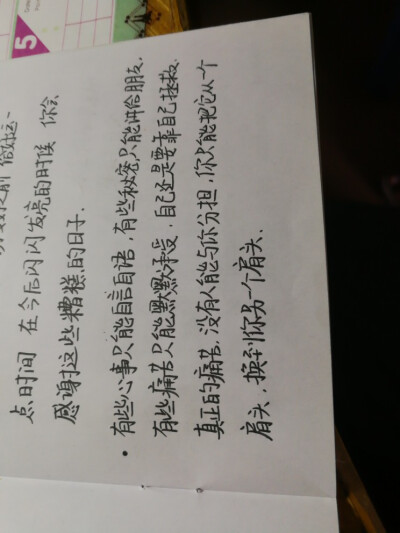 点时间 在今后闪闪发亮的时候 你会
感谢这些糟糕的日子.
• 有些心事只能自言自语，有些秘密只能讲给朋友.
有些痛苦只能默默承受，自己还是要靠自己拯救.
真正的痛苦，没有人能与你分担，你只能把它从一个
肩头，换到你另一个肩头.
5